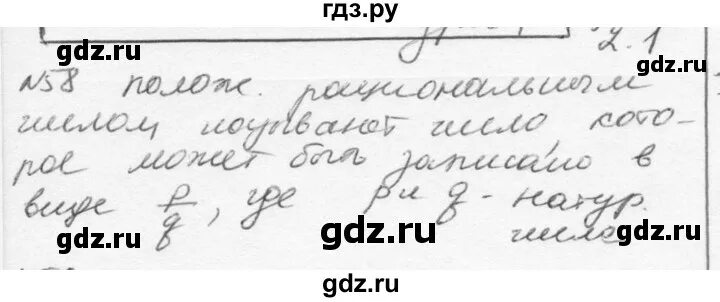 гдз.ру
2.1
№58 полож. рациональным
числом называют число кото-
рое может быть записано в
виде p/q, где p и q - натур.
числа
gdz.ru gdz.ru gdz.ru
gdz.ru gdz.ru gdz.ru
gdz.ru